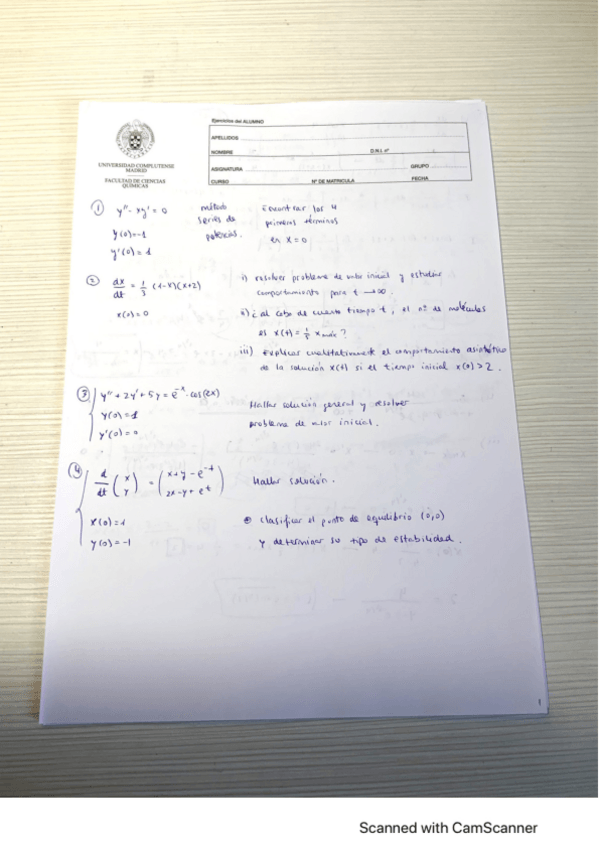 Ejercicios del ALUMNO
APELLIDOS
NOMBRE D.N.I. nº
ASIGNATURA GRUPO
CURSO Nº DE MATRICULA FECHA
UNIVERSIDAD COMPLUTENSE
MADRID
FACULTAD DE CIENCIAS
QUÍMICAS
① y'' - xy' = 0 método Encontrar los 4
y(0)=-1 series de primeros términos
y'(0)=1 potencias. en x=0
② dx/dt = 1/3 (1-x)(x+2) i) resolver problema de valor inicial y estudiar
comportamiento para t → ∞.
x(0)=0 ii) ¿al cabo de cuanto tiempo t, el nº de moléculas
es x(t) = x ?
iii) explicar cualitativamente el comportamiento asintótico
de la solución x(t) si el tiempo inicial x(0)>2.
③ y''+2y'+5y = e^-x·cos(2x)
y(0)=1 Hallar solución general y resolver
y'(0)=0 problema de valor inicial.
④ d/dt (x y) = (x+y-e^-t 2x-y+e^t) Hallar solución.
x(0)=1 clasificar el punto de equilibrio (0,0)
y(0)=-1 y determinar su tipo de estabilidad.
1
Scanned with CamScanner